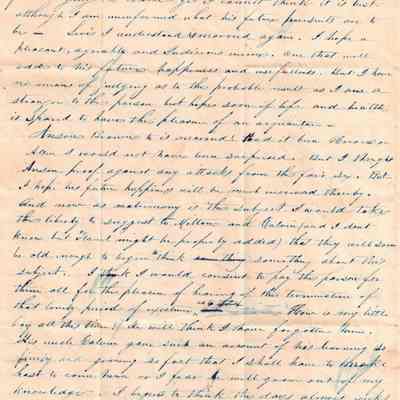 although I am uninformed what his future pursuits are to
be — Levi I understand is married again. I hope a
pleasant, agreeable and judicious union. One that will
add to his future happiness and usefulness. But I have
no means of judging as to the probable result as I am a
stranger to the person but hope soon if life and health
is spared to have the pleasure of an acquaintance —
Anson Brown to is married! Had it been
Allen I would not have been surprised. But I thought
Anson proof against any attacks from the fair sex. But
I hope his future happiness will be much increased thereby.
And now as matrimony is the subject I would take
the liberty to suggest to and Calvin (and I dont
know but might be properly added) that they will soon
be old enough to begin think something about this
subject. I think I would consent to pay the parson fee
them all for the pleasure of hearing of the termination of
that lonely period of How is my little
boy all this time? he will think I have forgotten him.
his uncle Calvin gave such an account of his learning so
finely and growing so fast that I shall have to make
haste to come home or I fear he will grow out of my
knowledge. I begin to think the days almost weeks